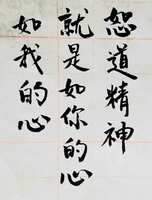 恕道精神
就是如你的心
如我的心